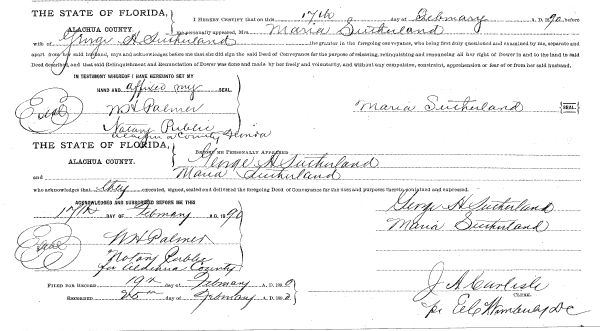 THE STATE OF FLORIDA,
ALACHUA COUNTY.
I HEREBY CERTIFY that on this 17th day of February A. D. 90 before
me personally appeared, Mrs. Maria Sutherland
wife of George H Sutherland the grantor in the foregoing conveyance, who being first duly questioned and examined by me, separate and
apart from her said husband, says and acknowledges before me that she did sign the said Deed of Conveyance for the purpose of releasing, relinquishing and renouncing all her right of Dower in and to the land in said
Deed described, and that said Relinquishment and Renunciation of Dower was done and made by her freely and voluntarily, and without any compulsion, constraint, apprehension or fear of or from her said husband.
IN TESTIMONY WHEREOF I HAVE HEREUNTO SET MY
HAND AND affixed my SEAL.
Seal
W H Palmer
Maria Sutherland SEAL.
Notary Public
Alachua County Florida
THE STATE OF FLORIDA,
ALACHUA COUNTY.
BEFORE ME PERSONALLY APPEARED George H Sutherland
and Maria Sutherland
who acknowledges that they executed, signed, sealed and delivered the foregoing Deed of Conveyance for the uses and purposes therein contained and expressed.
ACKNOWLEDGED AND SUBSCRIBED BEFORE ME THIS
17th DAY OF February A. D. 1890
George H Sutherland
Maria Sutherland
Seal
W H Palmer
Notary Public
for Alachua County
FILED FOR RECORD 19th day of February A. D. 1890
J A Carlisle
CLERK.
RECORDED 25th day of February A. D. 1890
per DC